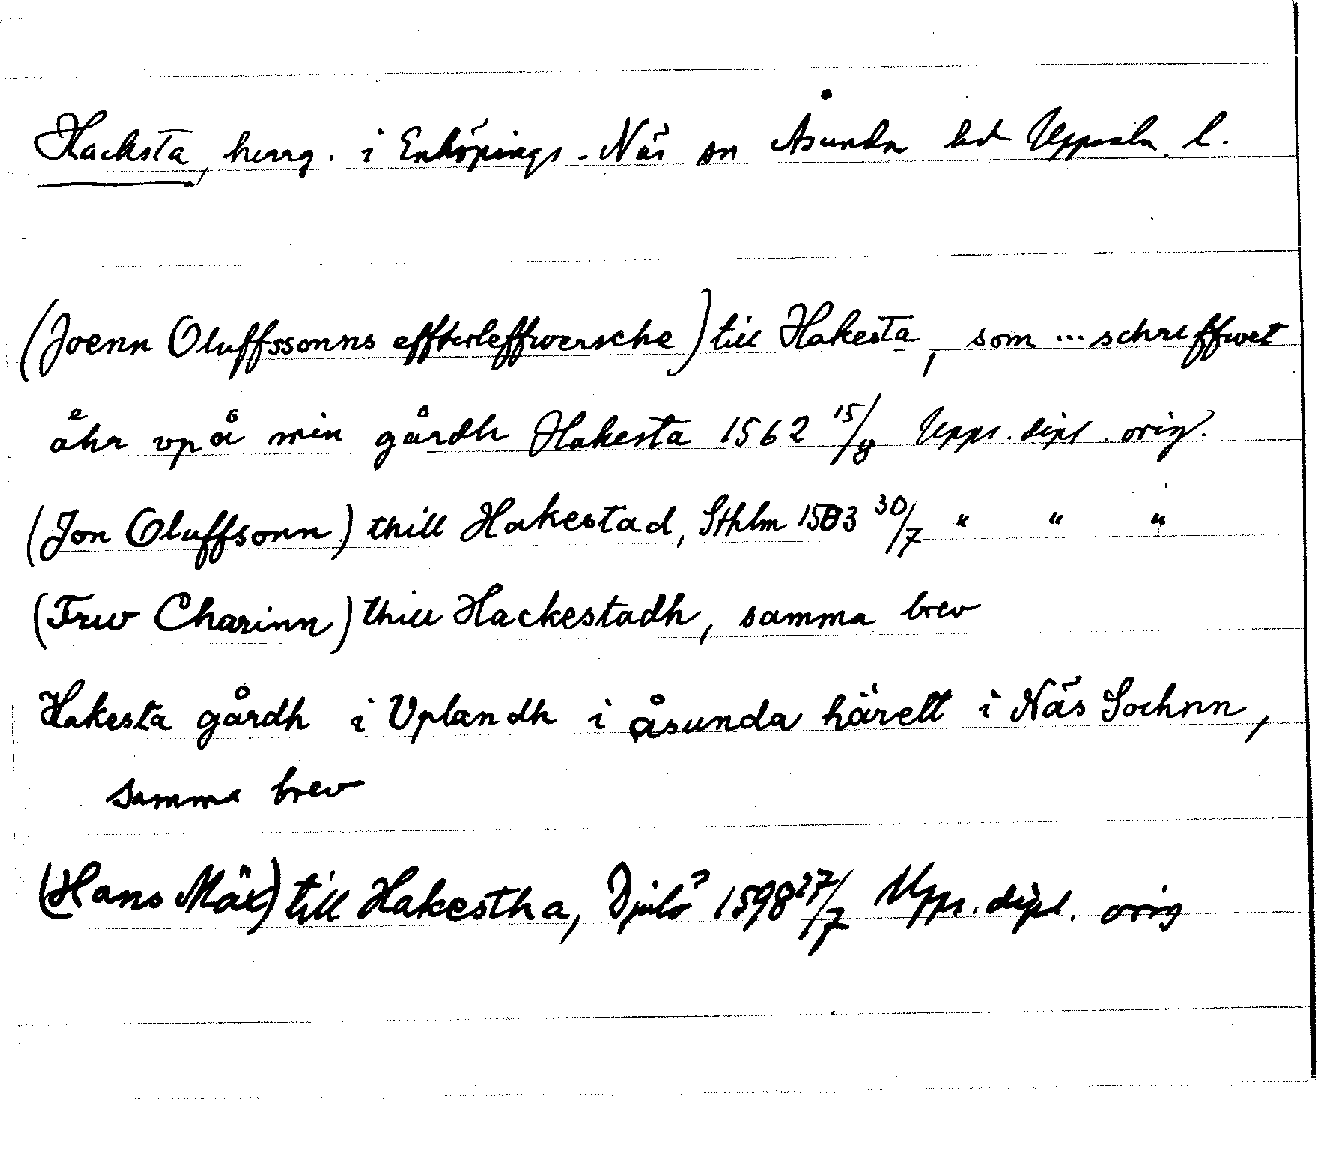 Hacksta, herrg. i Enköpings-Näs sn Åsunda hd Uppsala l.
(Joenn Oluffssonns effterleffwersche) till Hakesta, som ... schreffwet
åhr vpå min gårdh Hakesta 1562 15/8 Upps. dipl. orig.
(Jon Oluffsonn) thill Hakestad, Sthlm 1583 30/7 " " "
(Frw Charinn) thill Hackestadh, samma brev
Hakesta gårdh i Uplandh i åsunda härett i Näs Sochnn,
samma brev
(Hans Mäx) till Hakestha, Djulö 1598 27/7 Upps. dipl. orig